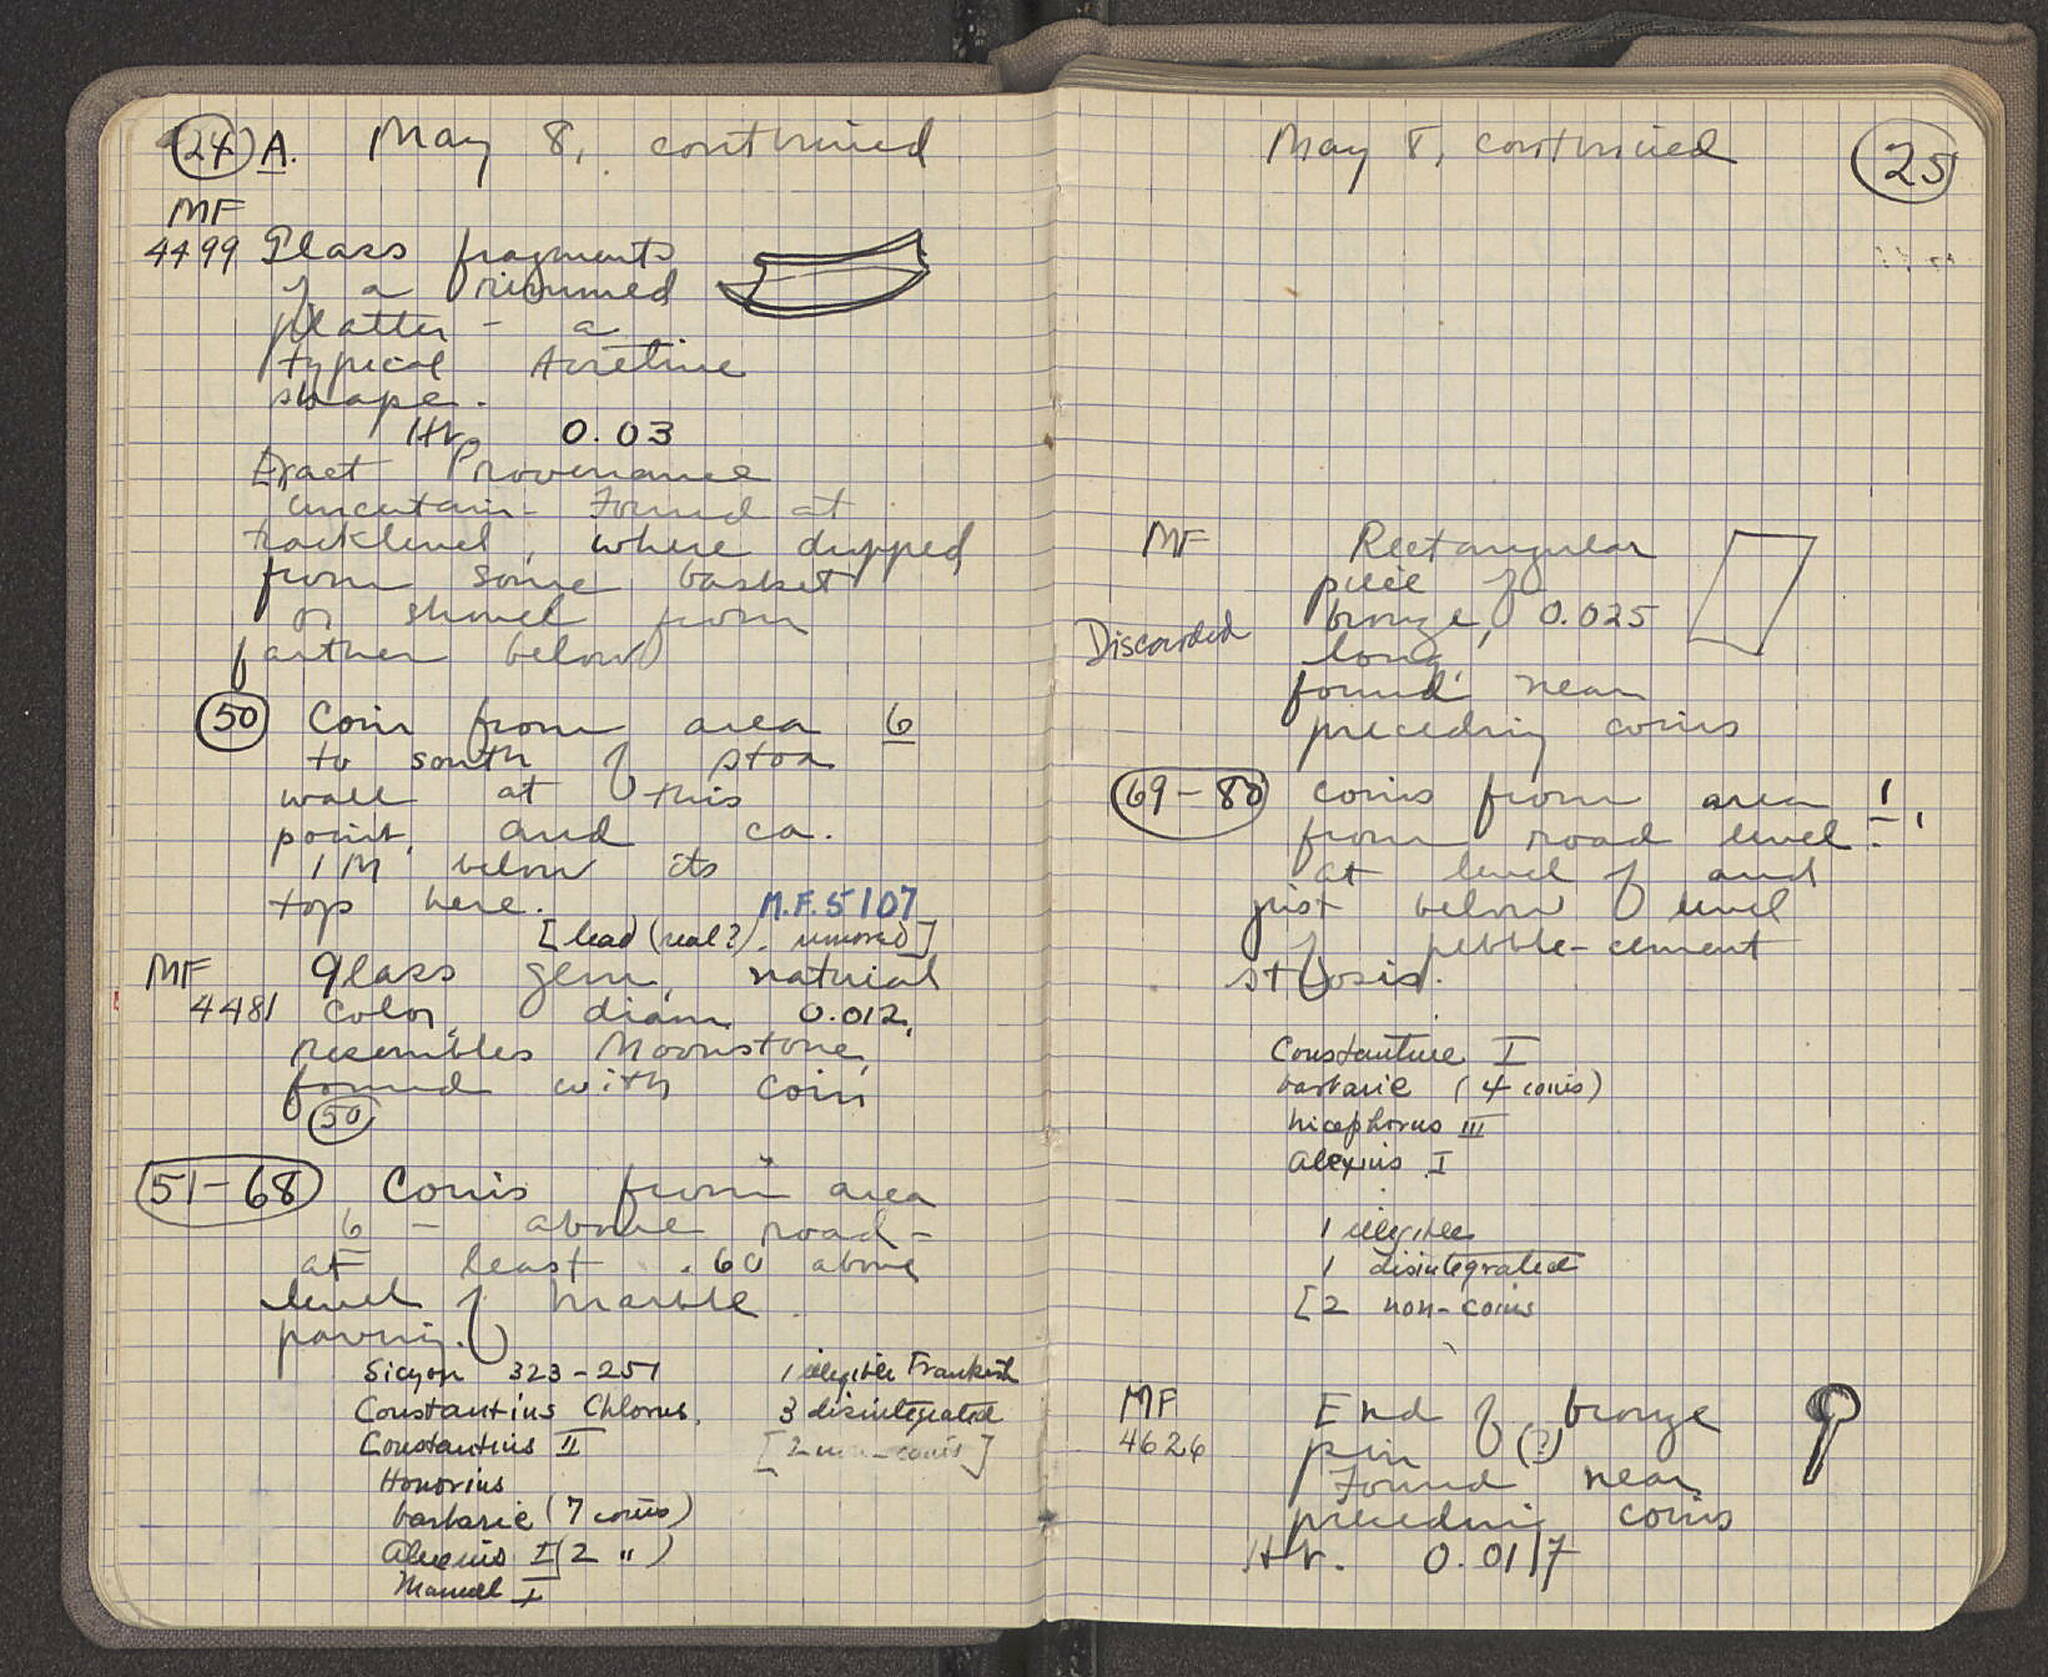 24 A. May 8, continued
MF
4499 Glass fragments
of a rimmed
platter - a
typical Arretine
shape.
Ht. 0.03
Exact Provenance
uncertain - Found at
track level, where dropped
from some basket
or shovel from
farther below
50 Coin from area 6
to south of stoa
wall at this
point, and ca.
1 M below its
top here. M.F. 5107
[lead (seal?). removed]
MF Glass gem, natural
4481 color, diam. 0.012,
resembles Moonstone,
found with coin
50
51-68 Coins from area
6 - above road -
at least .60 above
level of marble
paving.
Sicyon 323-251 1 illegible Frankish
Constantius Chlorus, 3 disintegrated
Constantius II [2 non-coins]
Honorius
barbaric (7 coins)
Alexius I (2 ")
Manuel I
May 8, continued 25
MF Rectangular
piece of
Discarded bronze, 0.025
long,
found near
preceding coins
69-80 coins from area 1,
from road level.
at level of and
just below level
of pebble-cement
stosis.
Constantine I
barbaric (4 coins)
Nicephorus III
Alexius I
1 illegible
1 disintegrated
[2 non-coins
MF End of bronze
4626 pin (?)
Found near
preceding coins
Ht. 0.017